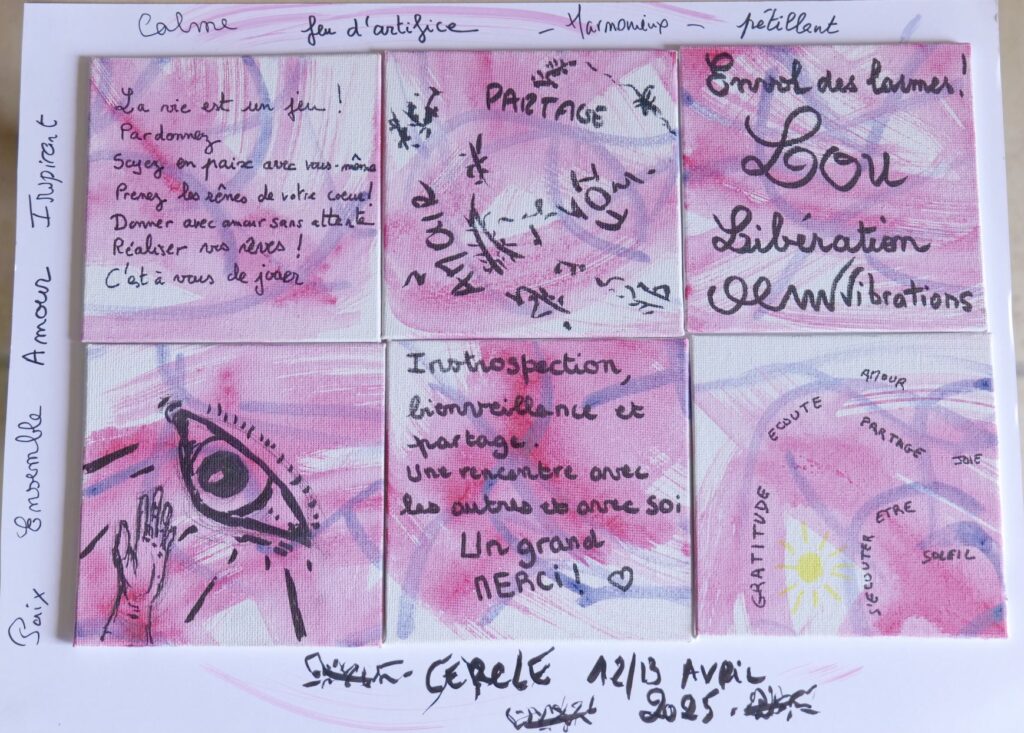 Calme feu d'artifice - Harmonieux - pétillant
Paix Ensemble Amour Inspirant
La vie est un jeu !
Pardonnez
Soyez en paix avec vous-même
Prenez les rênes de votre coeur!
Donner avec amour sans attente
Réaliser vos rêves !
C'est à vous de jouer
PARTAGE
AMOUR
Envol des larmes!
Lou
Libération
Vibrations
Introspection,
bienveillance et
partage.
Une rencontre avec
les autres et avec soi
Un grand
MERCI! ♡
AMOUR
ECOUTE
PARTAGE
JOIE
GRATITUDE
ETRE
S'ECOUTER
SOLEIL
CERCLE 12/13 AVRIL
2025.